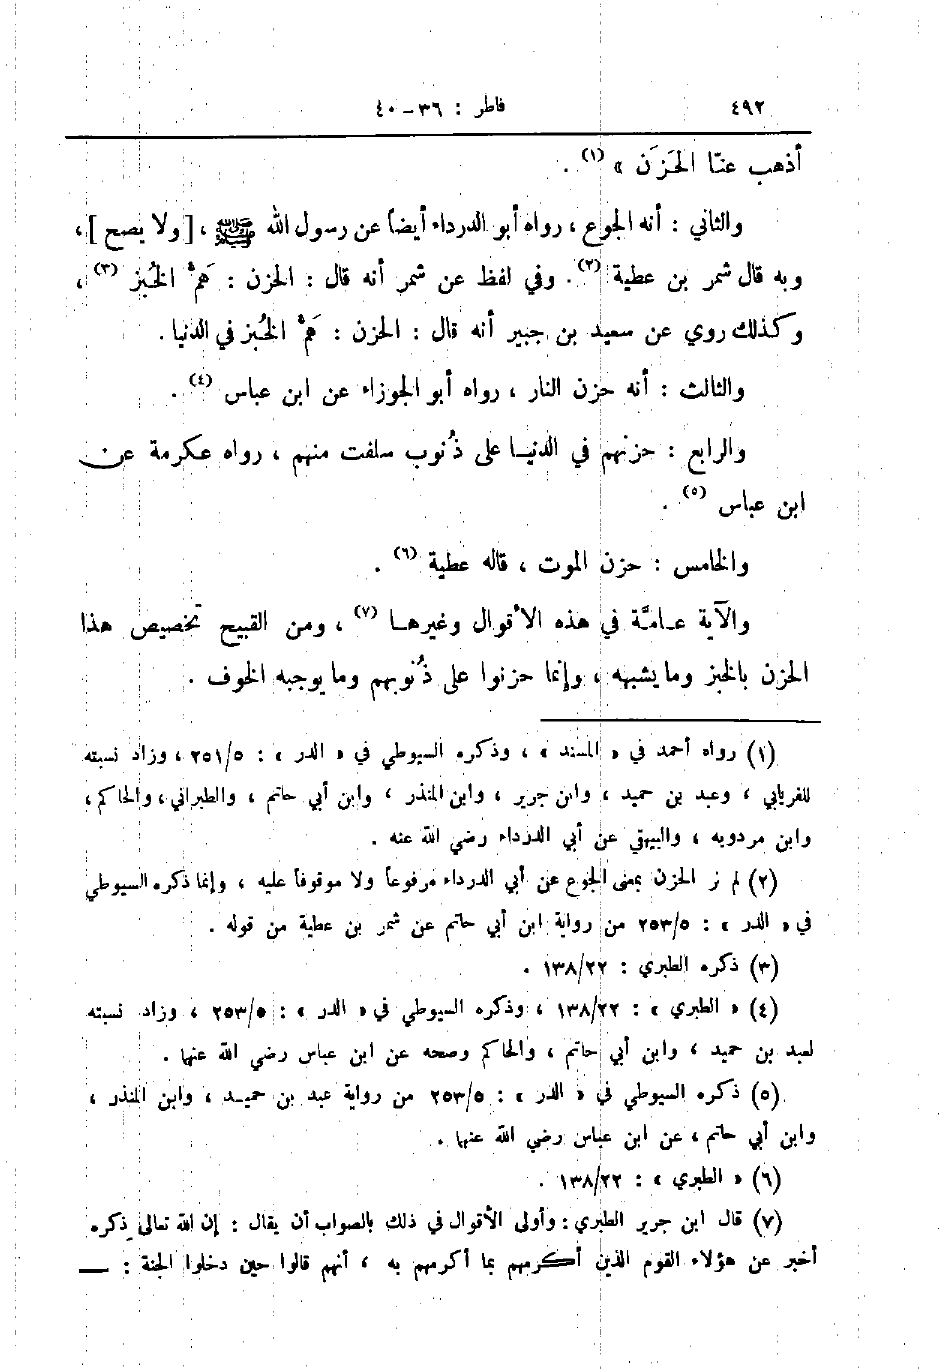 ٤٩٢ فاطر : ٣٦ – ٤٠
أذهب عنّا الحَزَن » (١) .
والثاني : أنه الجوع ، رواه أبو الدرداء أيضاً عن رسول الله ﷺ ، [ ولا يصح ] ،
وبه قال شمر بن عطية (٢) . وفي لفظ عن شمر أنه قال : الحزن : هَمُّ الخُبز (٣) ،
وكذلك روي عن سعيد بن جبير أنه قال : الحزن : هَمُّ الخُبز في الدنيا .
والثالث : أنه حزن النار ، رواه أبو الجوزاء عن ابن عباس (٤) .
والرابع : حزنهم في الدنيا على ذُنوب سلفت منهم ، رواه عكرمة عن
ابن عباس (٥) .
والخامس : حزن الموت ، قاله عطية (٦) .
والآية عامَّة في هذه الأقوال وغيرها (٧) ، ومن القبيح تخصيص هذا
الحزن بالخبز وما يشبهه ، وإنما حزنوا على ذُنوبهم وما يوجبه الخوف .
(١) رواه أحمد في « المسند » ، وذكره السيوطي في « الدر » : ٢٥١/٥ ، وزاد نسبته
للفريابي ، وعبد بن حميد ، وابن جرير ، وابن المنذر ، وابن أبي حاتم ، والطبراني ، والحاكم ،
وابن مردويه ، والبيهقي عن أبي الدرداء رضي الله عنه .
(٢) لم نر الحزن بمعنى الجوع عن أبي الدرداء مرفوعاً ولا موقوفاً عليه ، وإنما ذكره السيوطي
في « الدر » : ٢٥٣/٥ من رواية ابن أبي حاتم عن شمر بن عطية من قوله .
(٣) ذكره الطبري : ١٣٨/٢٢ .
(٤) « الطبري » : ١٣٨/٢٢ ، وذكره السيوطي في « الدر » : ٢٥٣/٥ ، وزاد نسبته
لعبد بن حميد ، وابن أبي حاتم ، والحاكم وصححه عن ابن عباس رضي الله عنها .
(٥) ذكره السيوطي في « الدر » : ٢٥٣/٥ من رواية عبد بن حميد ، وابن المنذر ،
وابن أبي حاتم ، عن ابن عباس رضي الله عنها .
(٦) « الطبري » : ١٣٨/٢٢ .
(٧) قال ابن جرير الطبري : وأولى الأقوال في ذلك بالصواب أن يقال : إن الله تعالى ذكره
أخبر عن هؤلاء القوم الذين أكرمهم بما أكرمهم به ، أنهم قالوا حين دخلوا الجنة : —